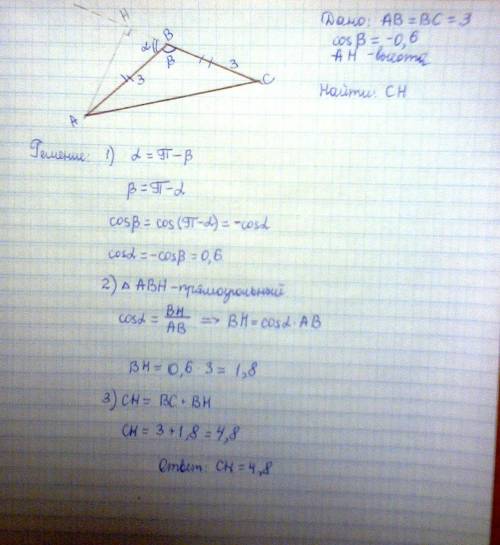 Дано: AB = BC = 3
cosβ = -0,6
AH - высота
Найти: CH
H
α B
β
3 3
C
A
Решение: 1) α = π - β
β = π - α
cosβ = cos(π - α) = -cosα
cosα = -cosβ = 0,6
2) △ ABH - прямоугольный
cosα = BH/AB => BH = cosα · AB
BH = 0,6 · 3 = 1,8
3) CH = BC + BH
CH = 3 + 1,8 = 4,8
Ответ: CH = 4,8